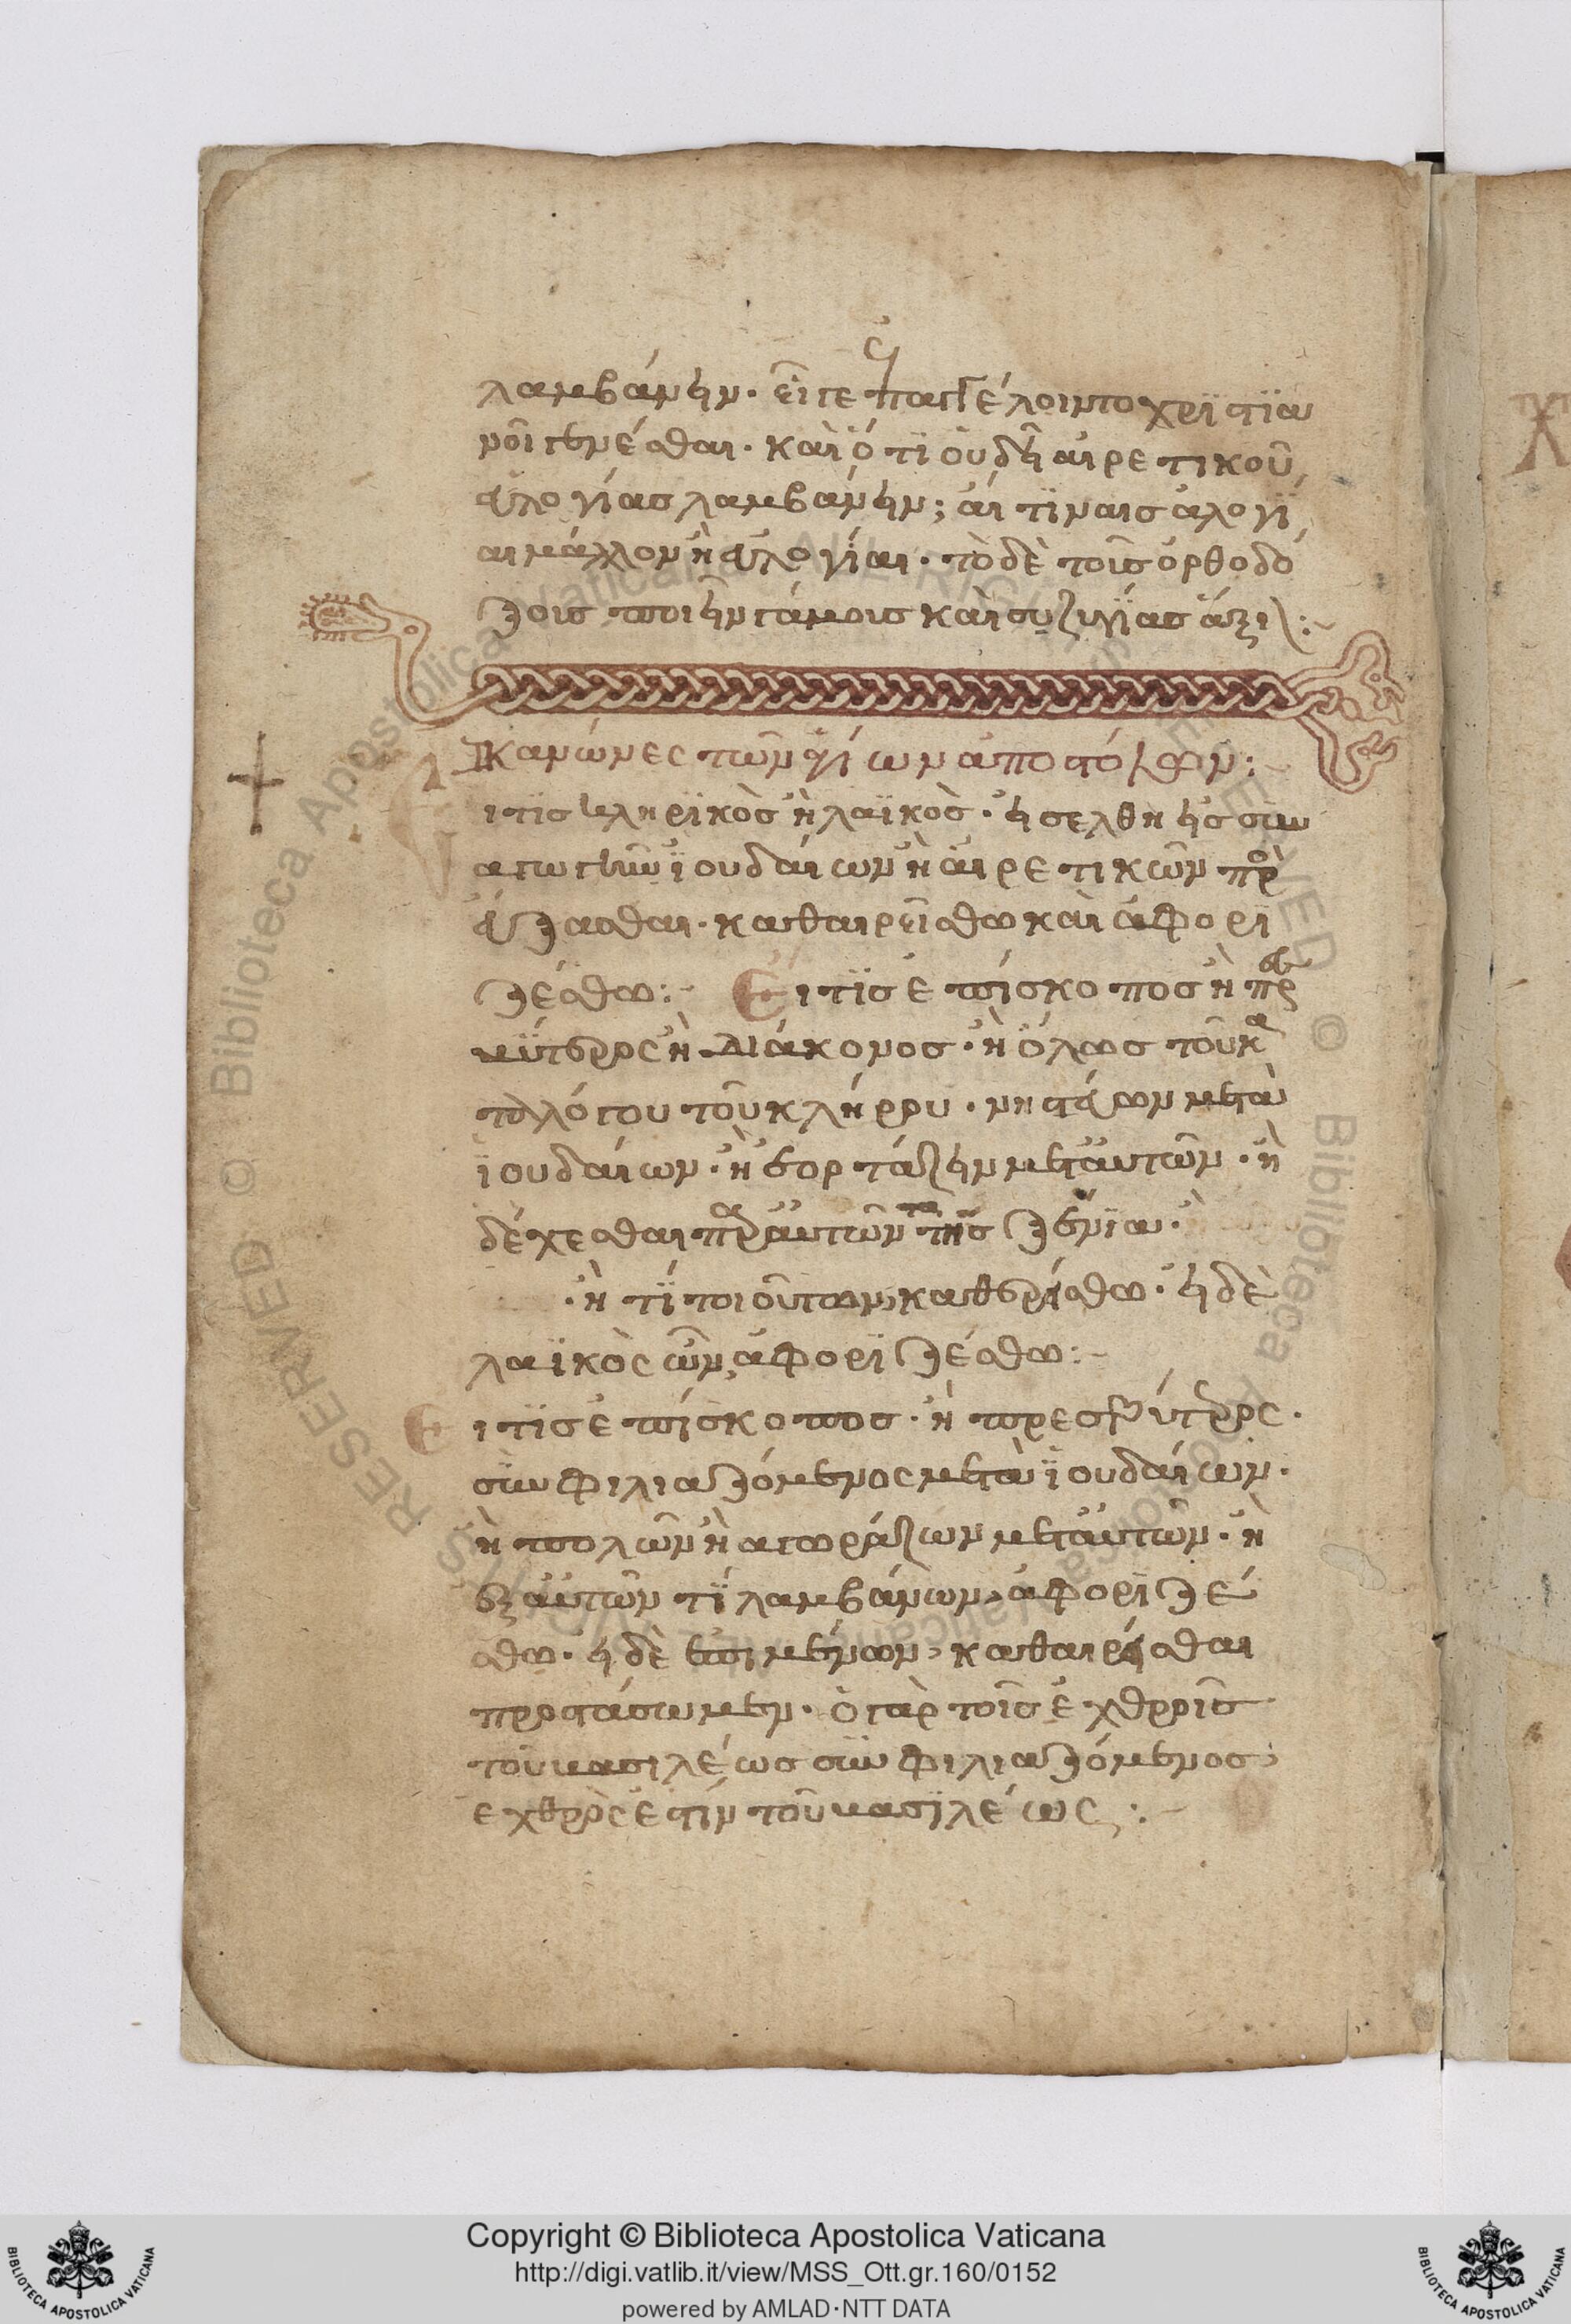 λαμβάνην· εἴ γε ἐπαγγέλοιντο χρϊστϊα
νοὶ γενέσθαι· καὶ ὅτι οὐ δεῖ αἱρετικοῦ
εὐλογίας λαμβάνην; αἵ τινες ἀλογϊ
αι μάλλον ἢ εὐλογίαι· τὸ δὲ τοῖς ὀρθοδό
ξοις ποιῆν γάμοις καὶ συζυγίας ἄξι:
Κανώνες τῶν ἁγίων ἀποστόλων:
Εἴ τις κληρϊκὸς ἢ λαϊκὸς· εἰσελθη εἰς συν
αγωγὴν ϊουδαίων ἢ αἱρετικῶν προ
εύξασθαι· καθαιρείσθω καὶ ἀφορϊ
ζέσθω: Εἴ τϊς ἐπίσκοπος ἢ πρεσ
βύτερος ἢ διάκονος· ἢ ὅλως τοῦ κα
ταλόγου τοῦ κλήρου· νηστεύων μετὰ
ϊουδαίων· ἢ ἑορτάζην μετ' αὐτῶν· ἢ
δέχεσθαι παρ' αὐτῶν τὰ τῆς ξένϊα·
·ἤ τϊ τοιοῦτων, καθερείσθω· εἰ δὲ
λαϊκὸς ὢν, ἀφορϊζέσθω:
Εἴ τϊς ἐπίσκοπος· ἢ πρεσβύτερος·
συνφιλιαζόμενος μετὰ ϊουδαίων·
ἢ πολῶν ἢ αγωράζων μετ' αὐτῶν· ἢ
ἐξ αὐτῶν τϊ λαμβάνων, ἀφορϊζέ
σθω· εἰ δὲ ἐπιμένων, καθαιρείσθαι
προστάσωμεν· ὁ γὰρ τοῖς ἐχθροῖς
τοῦ βασιλέως συνφιλιαζόμενος
εχθρὸς ἐστίν τοῦ βασϊλέως:
Copyright © Biblioteca Apostolica Vaticana
http://digi.vatlib.it/view/MSS_Ott.gr.160/0152
powered by AMLAD·NTT DATA
BIBLIOTECA APOSTOLICA VATICANA
BIBLIOTECA APOSTOLICA VATICANA